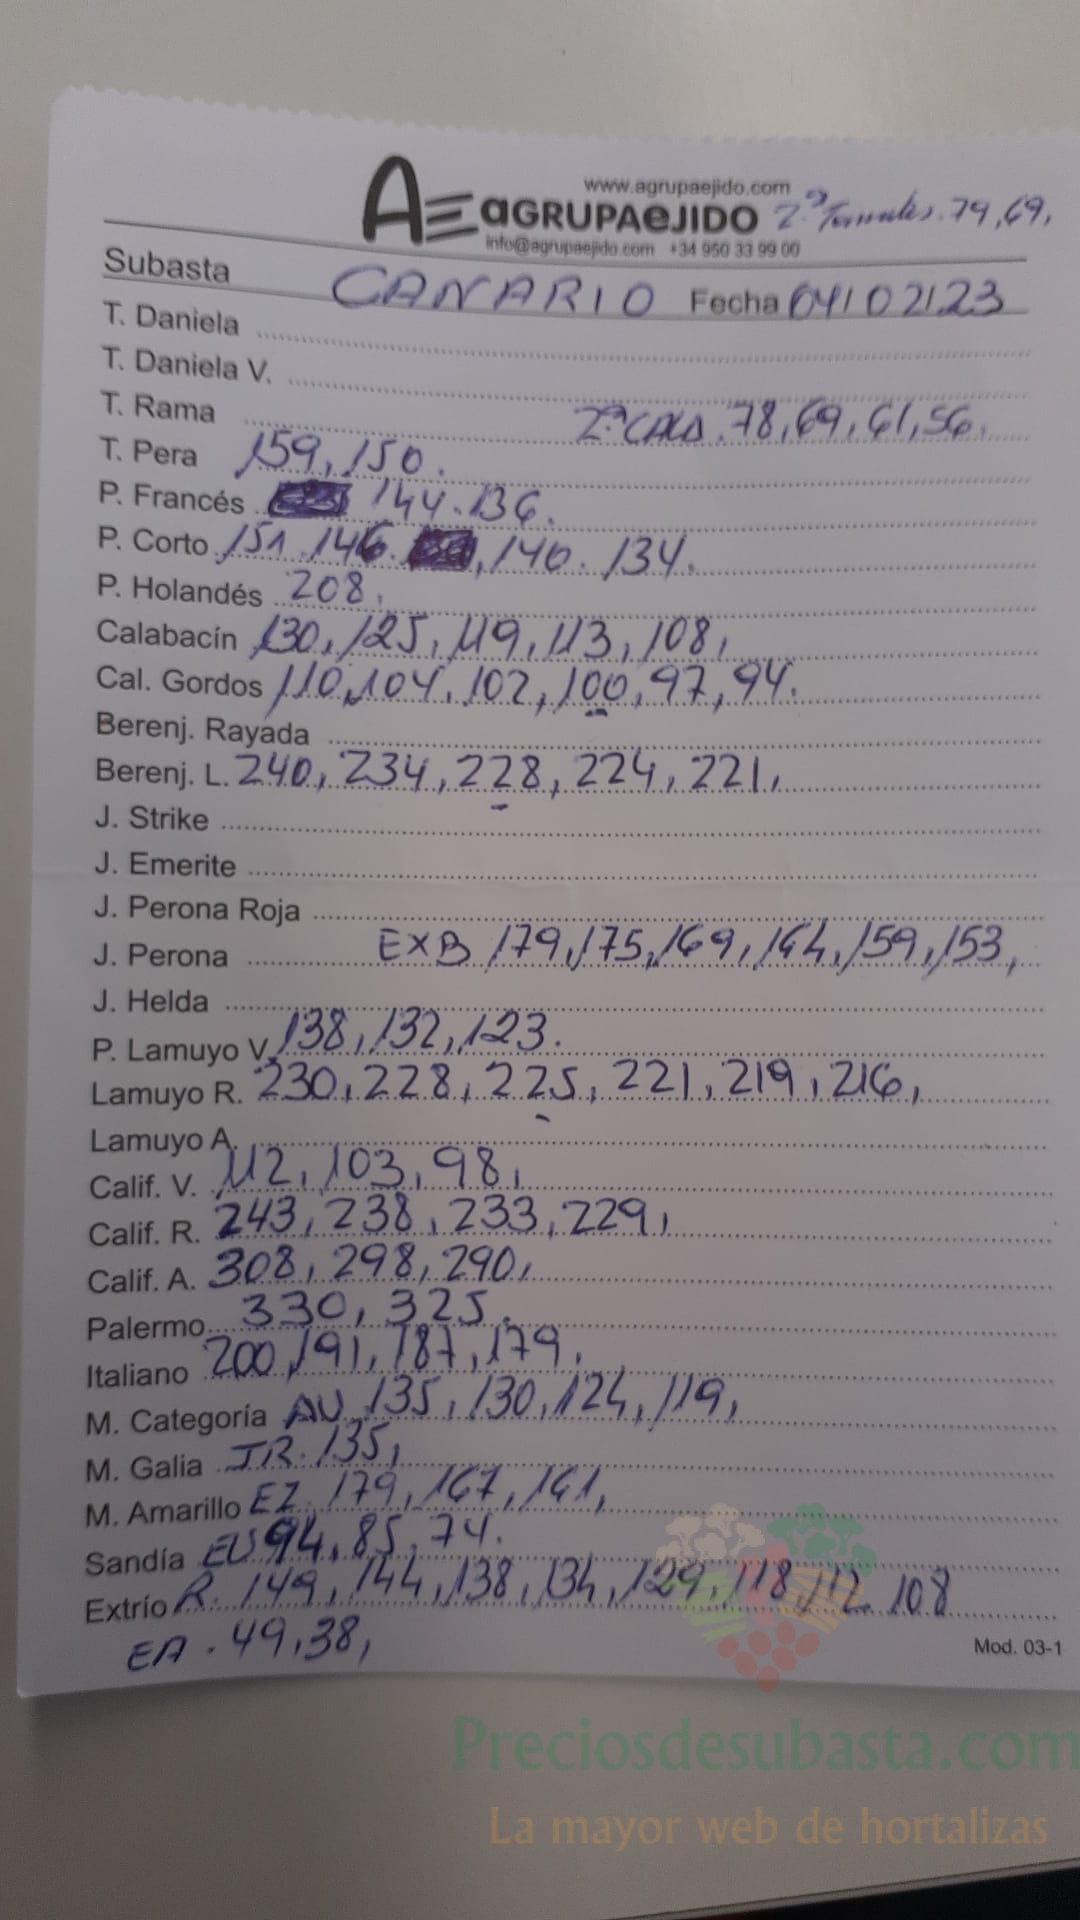 www.agrupaejido.com
AE aGRUPAeJIDO 2ª Tomates. 79, 69,
info@agrupaejido.com +34 950 33 99 00
Subasta CANARIO Fecha 04/02/23
T. Daniela
T. Daniela V.
T. Rama 2ª CALA. 78, 69, 61, 56.
T. Pera 159, 150.
P. Francés 144. 136.
P. Corto 151. 146. , 140. 134.
P. Holandés 208,
Calabacín 130, 125, 119, 113, 108,
Cal. Gordos 110, 104, 102, 100, 97, 94.
Berenj. Rayada
Berenj. L. 240, 234, 228, 224, 221,
J. Strike
J. Emerite
J. Perona Roja
J. Perona EXB 179, 175, 169, 164, 159, 153,
J. Helda
P. Lamuyo V. 138, 132, 123.
Lamuyo R. 230, 228, 225, 221, 219, 216,
Lamuyo A.
Calif. V. 112, 103, 98,
Calif. R. 243, 238, 233, 229,
Calif. A. 308, 298, 290,
Palermo 330, 325.
Italiano 200, 191, 187, 179,
M. Categoría AU. 135, 130, 124, 119,
M. Galia IR. 135,
M. Amarillo EZ. 179, 167, 161,
Sandía EU 94, 85, 74.
Extrío R. 149, 144, 138, 134, 129, 118, 112. 108
EA. 49, 38,
Mod. 03-1
Preciosdesubasta.com
La mayor web de hortalizas